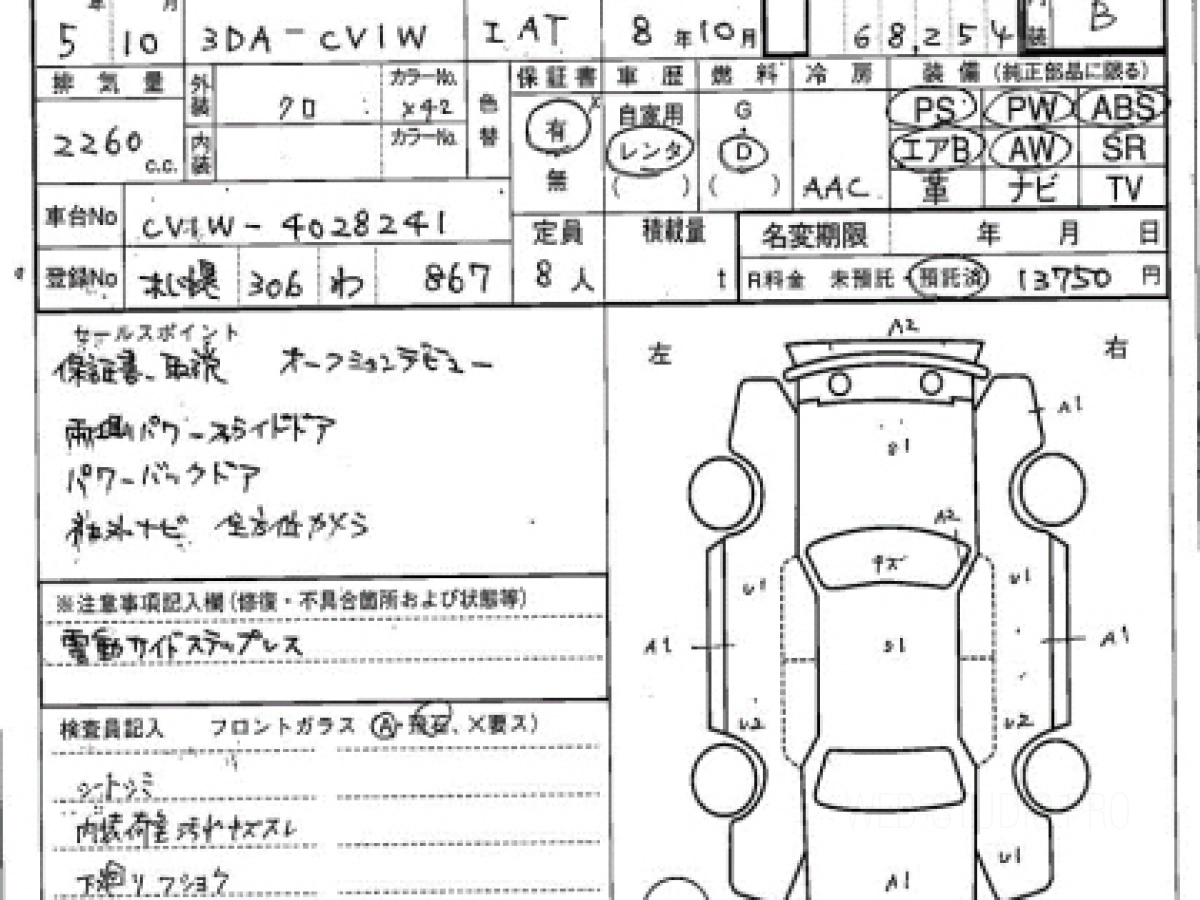 年 月
5 10 3DA-CV1W IAT 8年10月 68,254 内装 B
排気量 外装 クロ カラーNo. X42 色替 保証書 車歴 燃料 冷房 装備(純正部品に限る)
2260 c.c. 内装 カラーNo. 有 無 自家用 レンタ ( ) G・D ( ) AAC PS PW ABS
エアB AW SR
革 ナビ TV
車台No CV1W-4028241 定員 積載量 名変期限 年 月 日
登録No 札幌 306 わ 867 8人 t R料金 未預託・預託済 13750 円
セールスポイント
保証書、取説
両側パワースライドドア
パワーバックドア
社外ナビ 全方位カメラ
※注意事項記入欄(修復・不具合箇所および状態等)
電動サイドステップレス
検査員記入 フロントガラス (A・飛石、X要ス)
シートシミ
内装荷室汚れキズスレ
下廻リフショク
A2
左 右
A1
A2
キズ
U1 U1
A1 A1
U2 U2
U1
A1